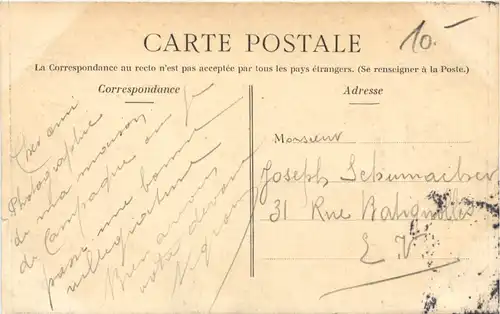 CARTE POSTALE
10.-
La Correspondance au recto n'est pas acceptée par tous les pays étrangers. (Se renseigner à la Poste.)
Correspondance
Cher ami
Photographie
de ma maison
de Campagne où je
passe une bonne
villégiature
Bien à vous
votre dévoué
Adresse
Monsieur
Joseph Schumacher
31 Rue Batignolles
E. V.